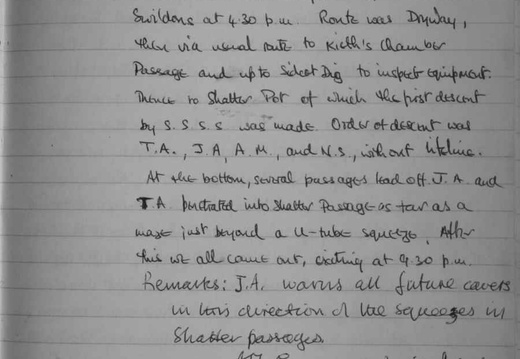 Swildons at 4.30 p.m. Route was Dryway,
then via usual route to Kieth's Chamber
Passage and up to Sidcot Dig to inspect equipment.
Thence to Shatter Pot of which the first descent
by S.S.S.S. was made. Order of descent was
T.A., J.A, A.M, and N.S., without lifeline.
At the bottom, several passages lead off. J.A. and
T.A penetrated into Shatter Passage as far as a
maze just beyond a U-tube squeeze. After
this we all came out, exiting at 9.30 p.m.
Remarks: J.A. warns all future cavers
in this direction of the squeezes in
Shatter passages